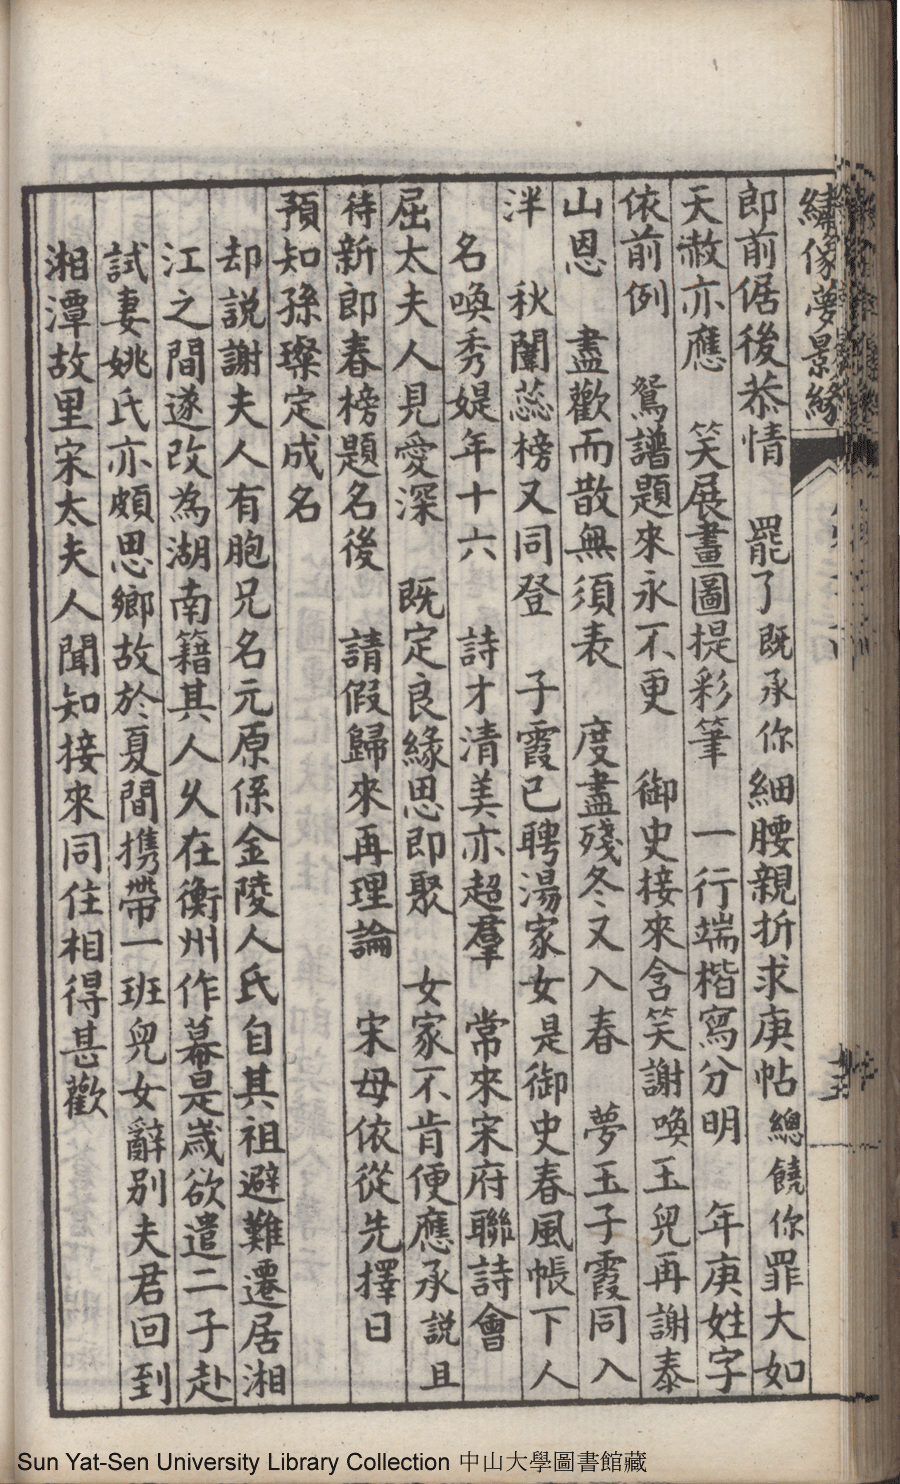 繡像夢景緣
郎前倨後恭情　罷了既承你細腰親折求庚帖總饒你罪大如
天赦亦應　笑展畫圖提彩筆　一行端楷寫分明　年庚姓字
依前例　鴛譜題來永不更　御史接來含笑謝喚玉兒再謝泰
山恩　盡歡而散無須表　度盡殘冬又入春　夢玉子霞同入
泮　秋闈蕊榜又同登　子霞已聘湯家女是御史春風帳下人
名喚秀媞年十六　詩才清美亦超羣　常來宋府聯詩會
屈太夫人見愛深　既定良緣思即聚　女家不肯便應承說且
待新郎春榜題名後　請假歸來再理論　宋母依從先擇日
預知孫璨定成名
却說謝夫人有胞兄名元原係金陵人氏自其祖避難遷居湘
江之間遂改為湖南籍其人久在衡州作幕是歲欲遣二子赴
試妻姚氏亦頗思鄉故於夏間携帶一班兒女辭別夫君回到
湘潭故里宋太夫人聞知接來同住相得甚歡
Sun Yat-Sen University Library Collection 中山大學圖書館藏